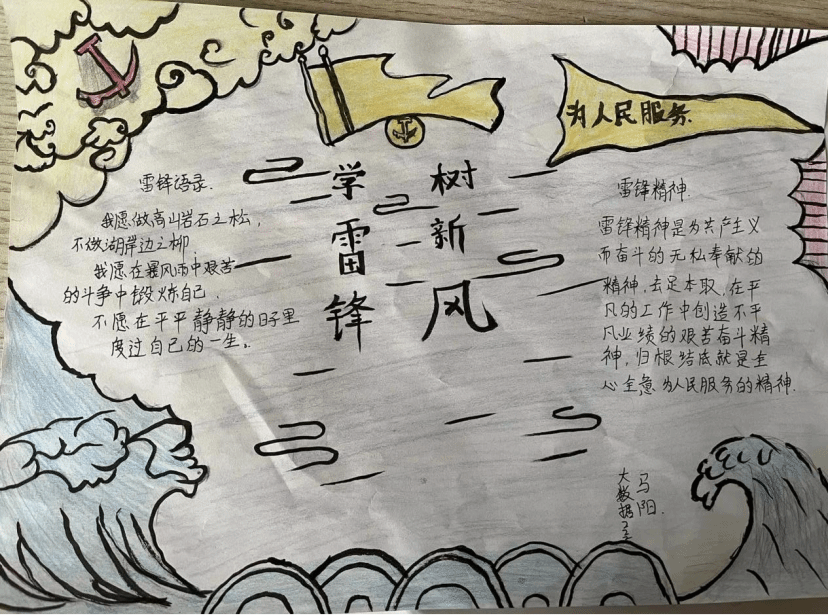 为人民服务.
学雷锋
树新风
雷锋语录.
我愿做高山岩石之松,
不做湖岸边之柳.
我愿在暴风雨中艰苦
的斗争中锻炼自己.
不愿在平平静静的日子里
度过自己的一生.
雷锋精神.
雷锋精神是为共产主义
而奋斗的无私奉献的
精神,去足本取,在平
凡的工作中创造不平
凡业绩的艰苦奋斗精
神,归根结底就是全
心全意为人民服务的精神.
马阳.
大数据